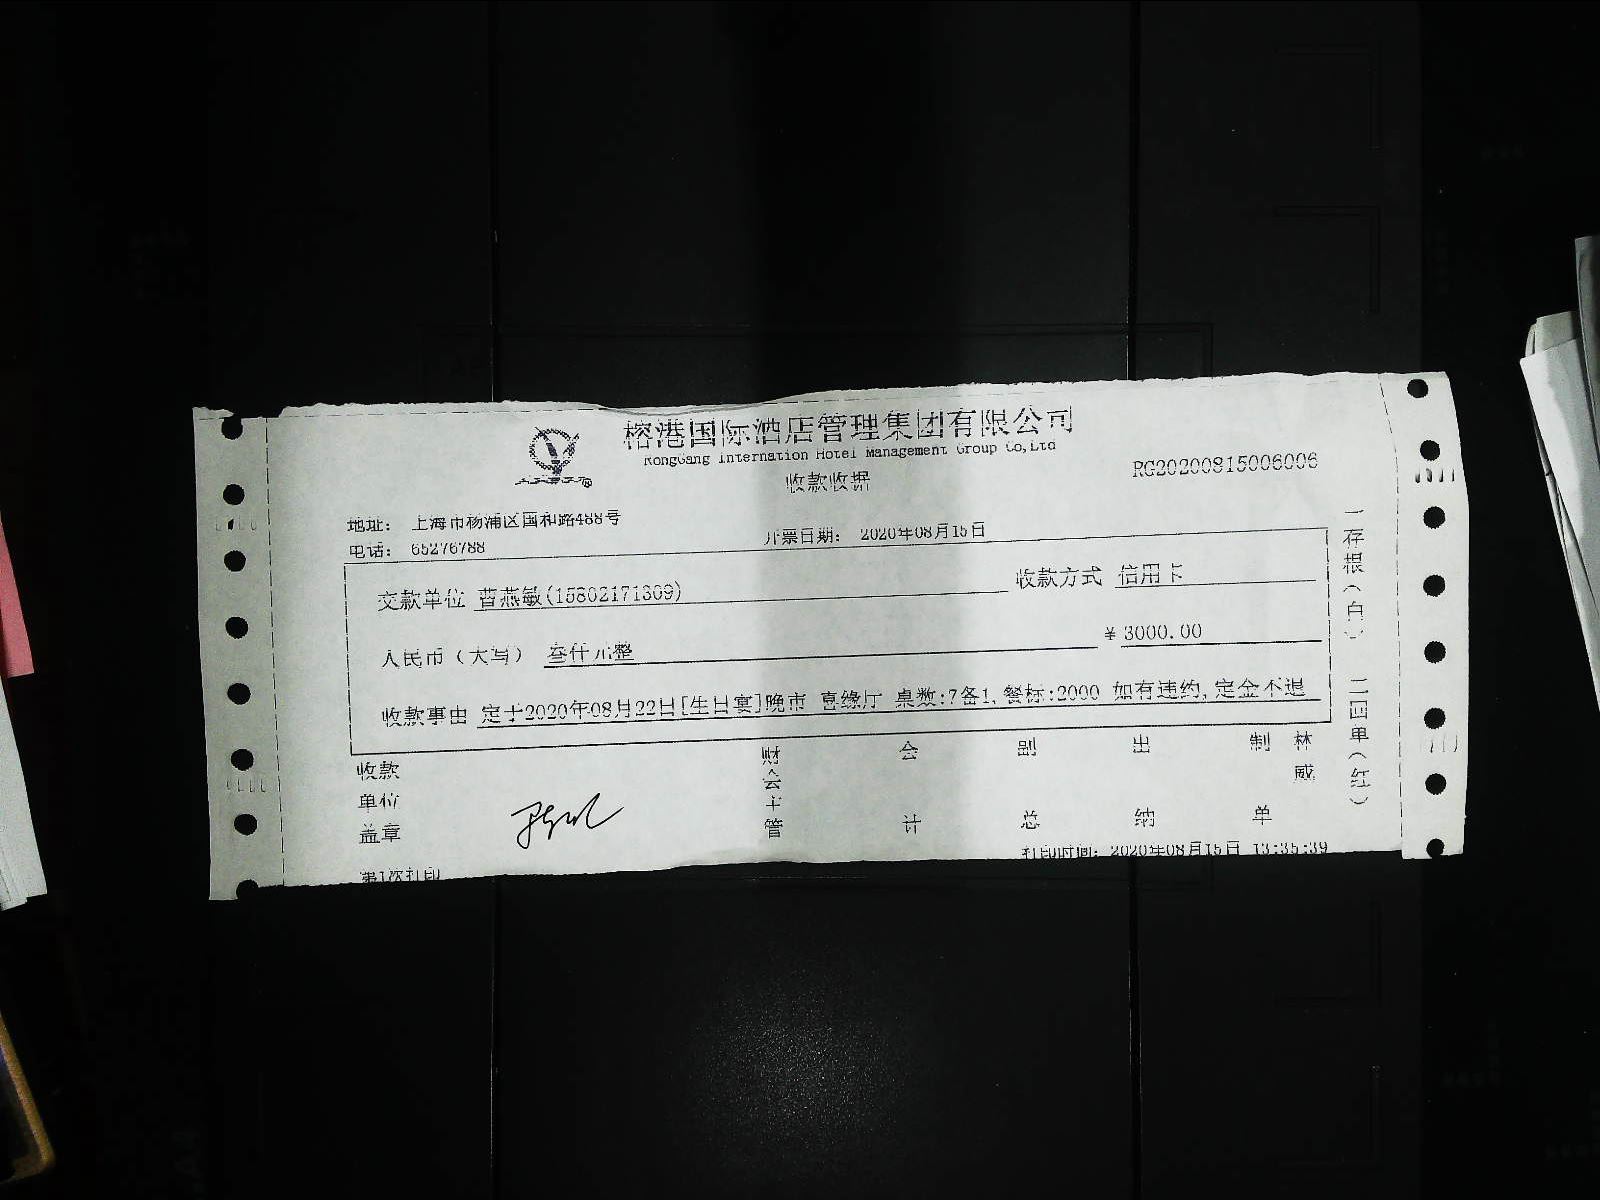 榕港国际酒店管理集团有限公司
RongGang Internation Hotel Management Group Co,Ltd
收款收据
RG20200815006006
地址: 上海市杨浦区国和路488号
电话: 65276788
开票日期: 2020年08月15日
交款单位 曹燕敏(15802171309)
收款方式 信用卡
人民币（大写） 叁仟元整
¥ 3000.00
收款事由 定于2020年08月22日[生日宴]晚市 喜缘厅 桌数:7备1, 餐标:2000 如有违约, 定金不退
收款单位盖章
财会主管
会计
副总
出纳
制单
林威
一存根（白） 二四单（红）
第1次打印
打印时间: 2020年08月15日 13:35:39